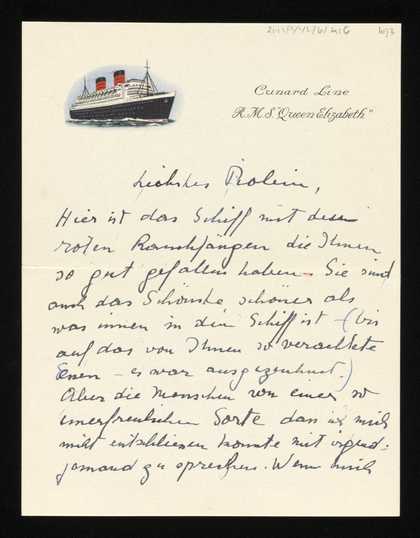 Cunard Line
R.M.S. "Queen Elizabeth"
Liebstes
Hier ist das Schiff mit den
roten Rauchfängen die Ihnen
so gut gefallen haben. Sie sind
auch das Schönste schöner als
was innen in dem Schiff ist – (bis
auf das von Ihnen so verachtete
Essen – es war ausgezeichnet.)
Aber die Menschen von einer so
unerfreulichen Sorte dass ich mich
nicht entschliessen konnte mit irgend-
jemand zu sprechen. Wenn mich